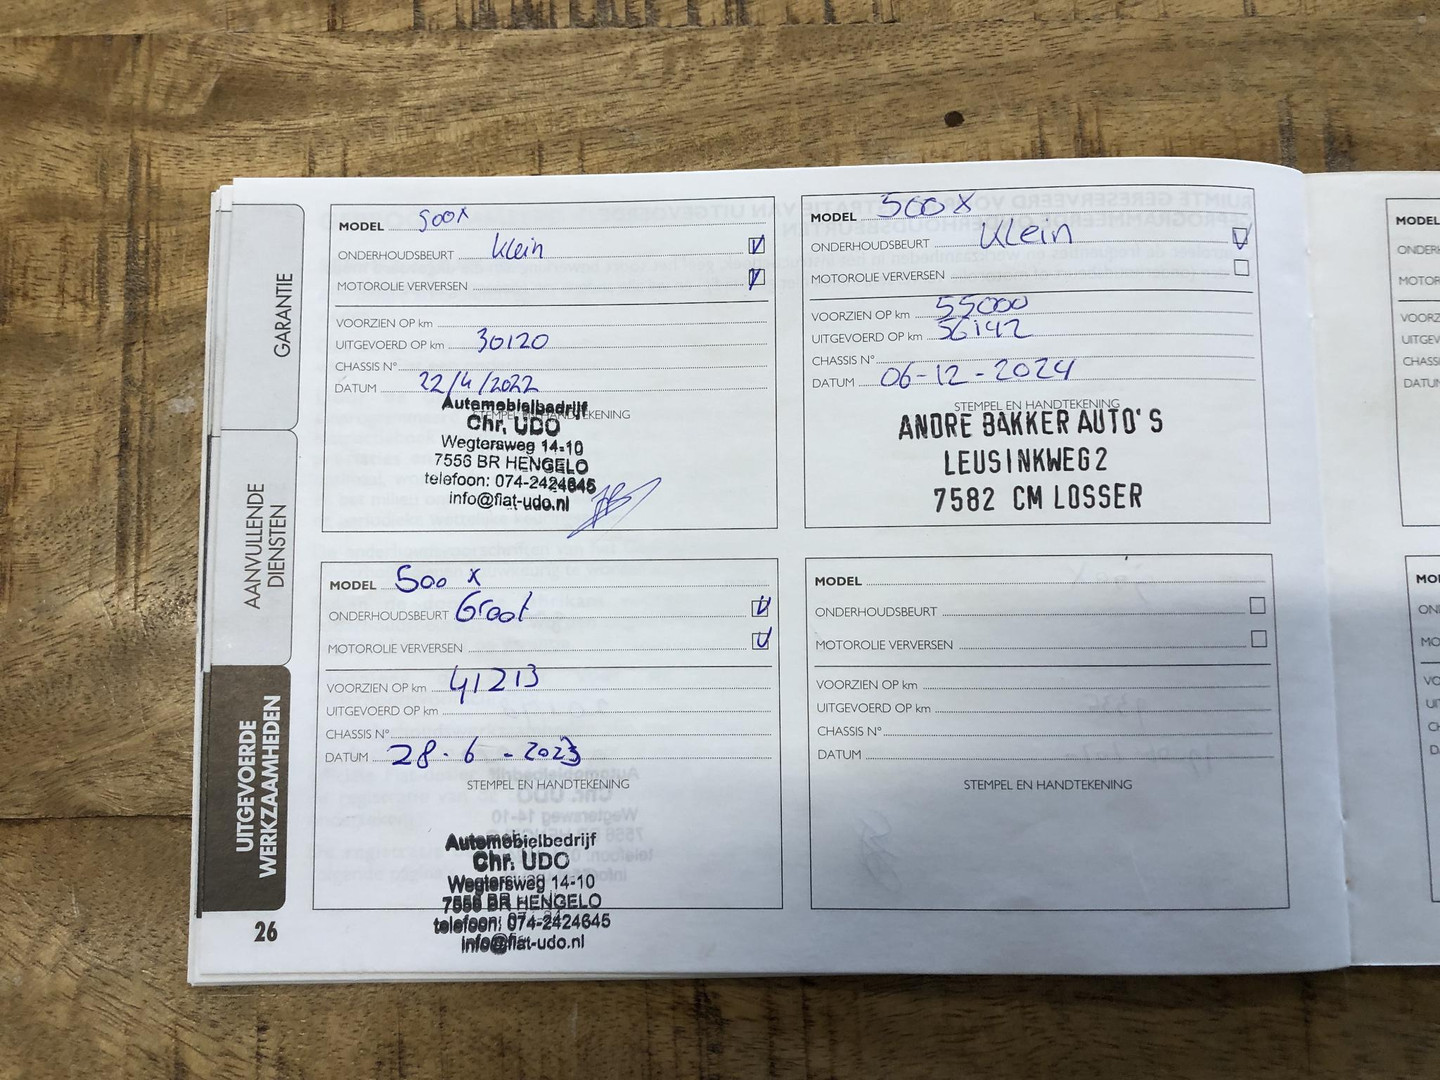 GARANTIE
AANVULLENDE
DIENSTEN
UITGEVOERDE
WERKZAAMHEDEN
26
MODEL 500X
ONDERHOUDSBEURT Klein
MOTOROLIE VERVERSEN
VOORZIEN OP km
UITGEVOERD OP km 30120
CHASSIS N°
DATUM 22/4/2022
STEMPEL EN HANDTEKENING
Automobielbedrijf
Chr. UDO
Wegtersweg 14-10
7556 BR HENGELO
telefoon: 074-2424645
info@fiat-udo.nl
MODEL 500 X
ONDERHOUDSBEURT Groot
MOTOROLIE VERVERSEN
VOORZIEN OP km 41213
UITGEVOERD OP km
CHASSIS N°
DATUM 28-6-2023
STEMPEL EN HANDTEKENING
Automobielbedrijf
Chr. UDO
Wegtersweg 14-10
7556 BR HENGELO
telefoon: 074-2424645
info@fiat-udo.nl
MODEL 500 X
ONDERHOUDSBEURT Klein
MOTOROLIE VERVERSEN
VOORZIEN OP km 55000
UITGEVOERD OP km 56142
CHASSIS N°
DATUM 06-12-2024
STEMPEL EN HANDTEKENING
ANDRE BAKKER AUTO'S
LEUSINKWEG2
7582 CM LOSSER
MODEL
ONDERHOUDSBEURT
MOTOROLIE VERVERSEN
VOORZIEN OP km
UITGEVOERD OP km
CHASSIS N°
DATUM
STEMPEL EN HANDTEKENING
MODEL